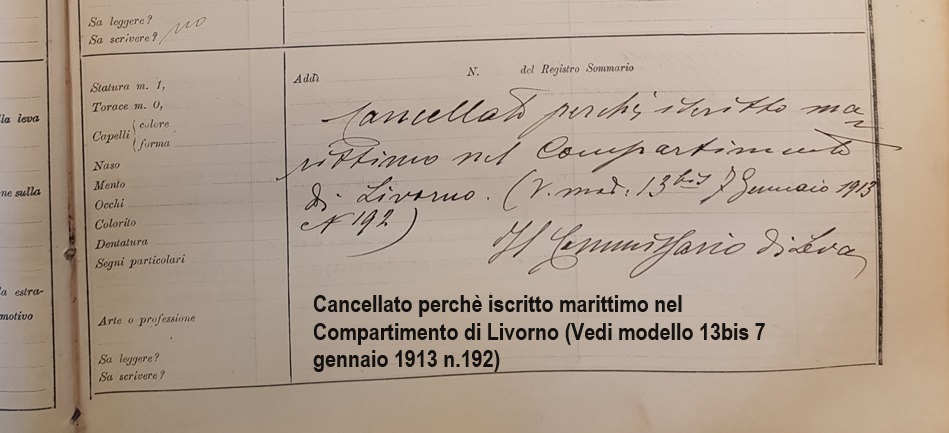 Sa leggere?
Sa scrivere? no
Statura m. 1,
Torace m. 0,
Capelli { colore
forma
Naso
Mento
Occhi
Colorito
Dentatura
Segni particolari
Arte o professione
Sa leggere?
Sa scrivere?
la leva
ne sulla
a estra-
motivo
Addì N. del Registro Sommario
Cancellato perchè iscritto ma
rittimo nel Compartimento
di Livorno. (V. mod: 13 bis 7 Gennaio 1913
N 192)
Il Commissario di Leva
Cancellato perchè iscritto marittimo nel
Compartimento di Livorno (Vedi modello 13bis 7
gennaio 1913 n.192)